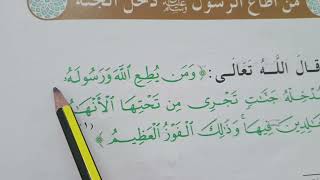 من أطاع الرسول ﷺ دخل الجنة
قَالَ اللَّهُ تَعَالَى: ﴿وَمَن يُطِعِ ٱللَّهَ وَرَسُولَهُۥ
يُدْخِلْهُ جَنَّٰتٍ تَجْرِى مِن تَحْتِهَا ٱلْأَنْهَٰرُ
خَٰلِدِينَ فِيهَا ۚ وَذَٰلِكَ ٱلْفَوْزُ ٱلْعَظِيمُ﴾ (١)